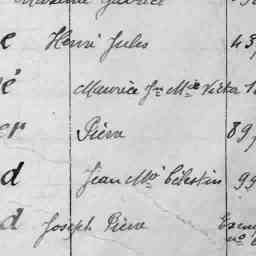 e Henri Jules 43,
é Maurice Jn Mie Victor 1
er Pierre 89,
d Jean Mie Célestin 99
d Joseph Pierre